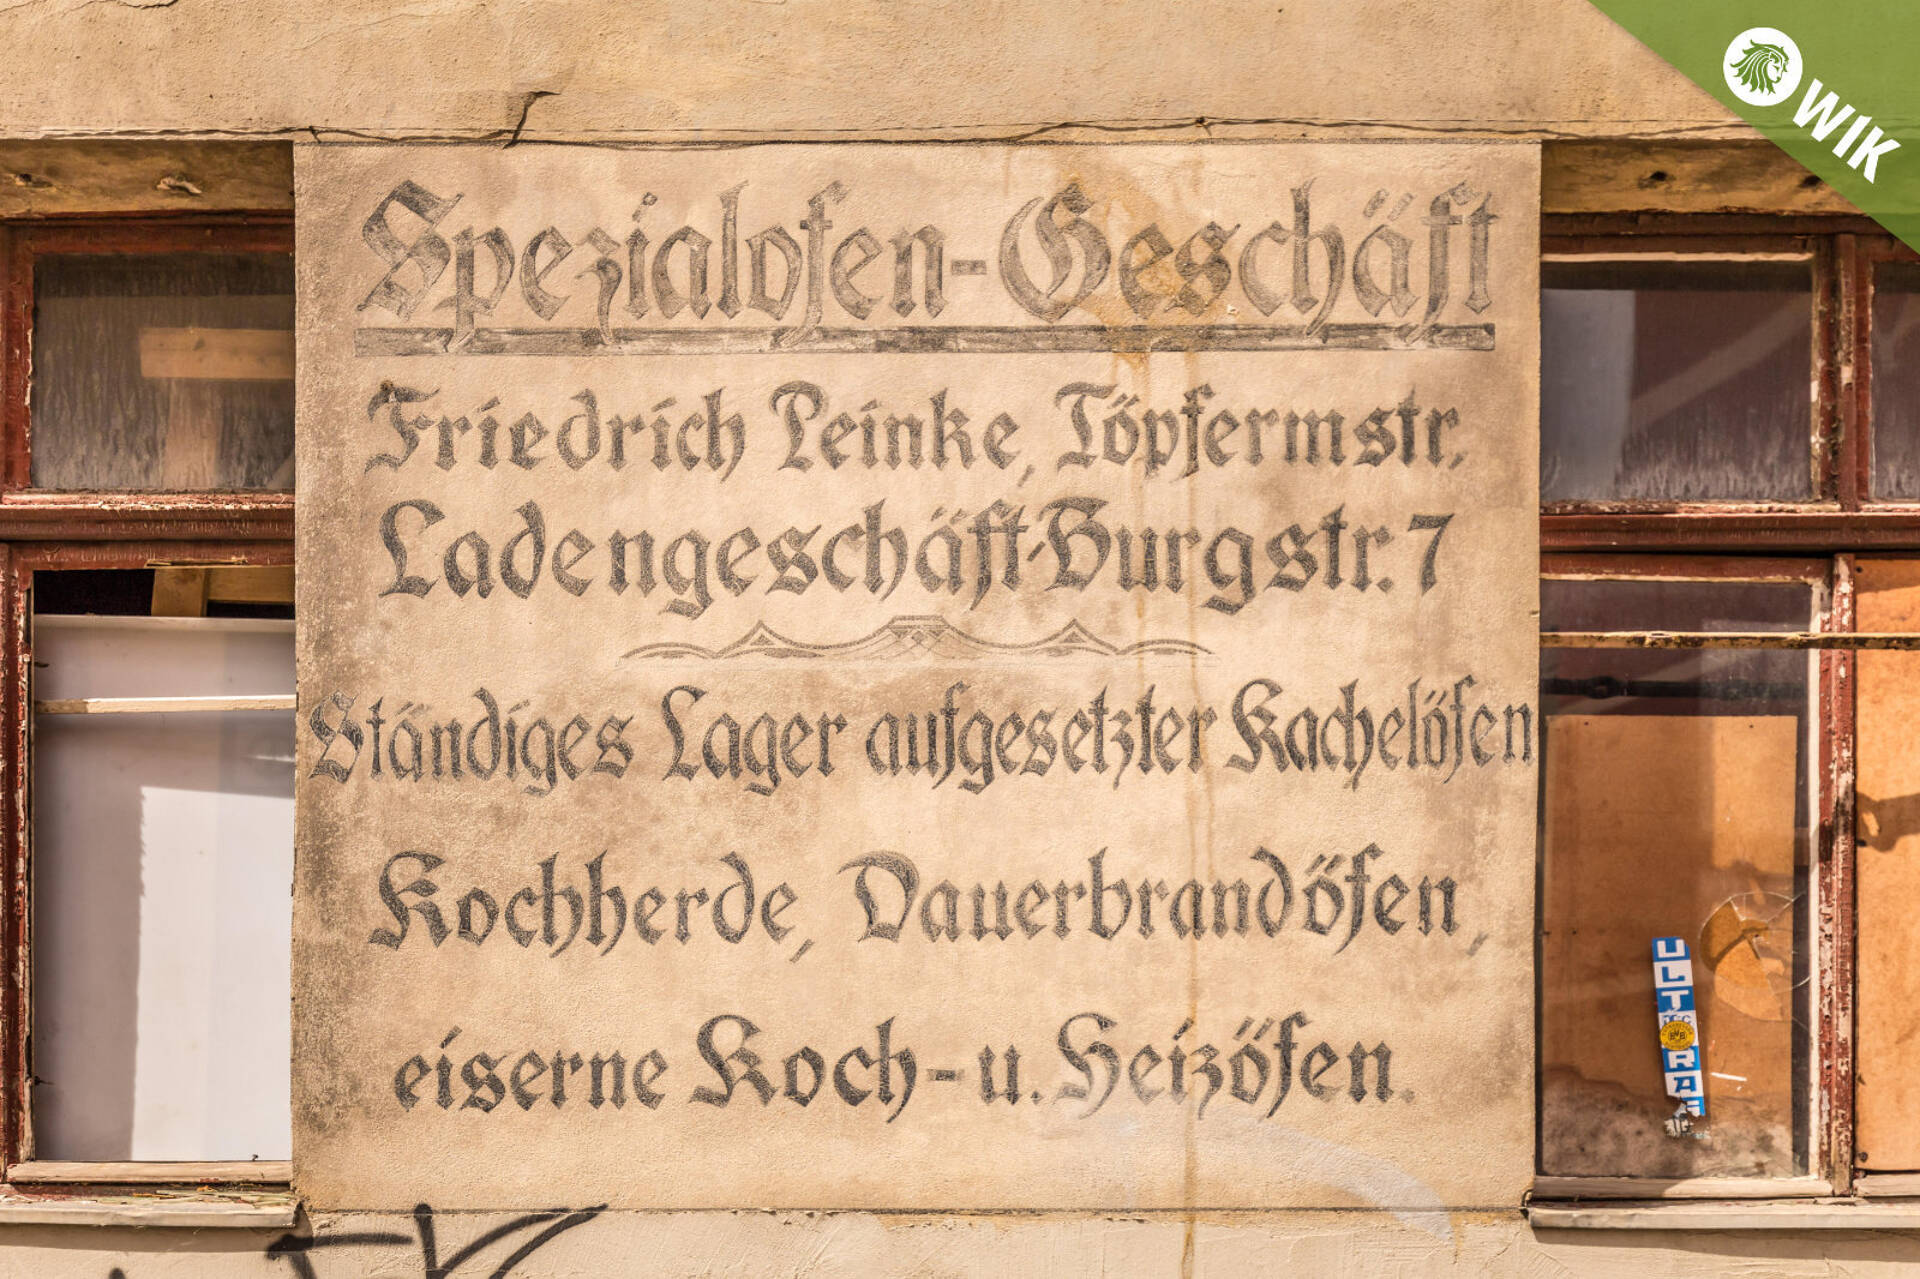 Spezialofen-Geschäft
Friedrich Leinke, Töpfermstr.
Ladengeschäft-Burgstr. 7
Ständiges Lager aufgesetzter Kachelöfen
Kochherde, Dauerbrandöfen,
eiserne Koch- u. Heizöfen.
WIK
ULTRAS